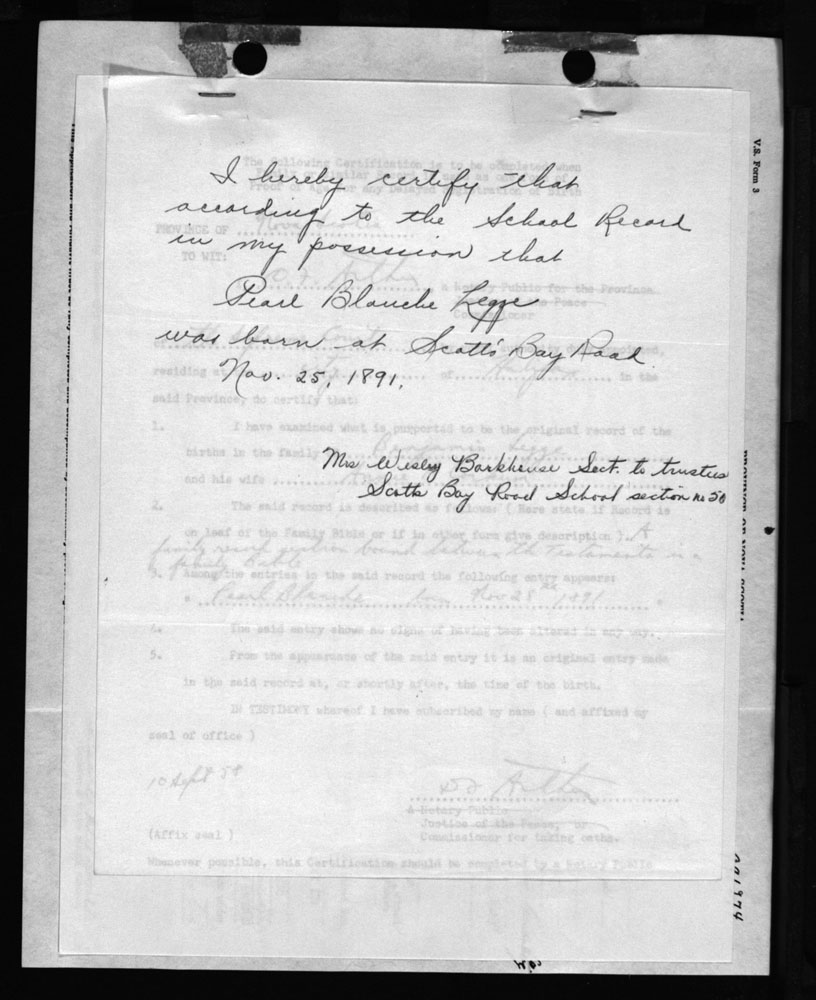 I hereby certify that
according to the School Record
in my possession that
Pearl Blanche Legge
was born at Scott's Bay Road
Nov. 25, 1891.
Mrs Wesley Barkhouse Sect. to trustees
Scotts Bay Road School section no 50
The following Certification is to be completed when
Proof of Age for any Delayed Registration of Birth
PROVINCE OF Nova Scotia
TO WIT:
a Notary Public for the Province
Commissioner
residing at of in the
said Province, do certify that:
1. I have examined what is purported to be the original record of the
births in the family Benjamin Legge
and his wife
2. The said record is described as follows: ( Here state if Record is
on leaf of the Family Bible or if in other form give description ). A
family record section bound between the testaments in a
family Bible
3. Among the entries in the said record the following entry appears:
" Pearl Blanche born Nov 28 1891 "
4. The said entry shows no signs of having been altered in any way.
5. From the appearance of the said entry it is an original entry made
in the said record at, or shortly after, the time of the birth.
IN TESTIMONY whereof I have subscribed my name ( and affixed my
seal of office )
10 Sept 58
A Notary Public
Justice of the Peace, or
Commissioner for taking oaths.
(Affix seal )
Whenever possible, this Certification should be completed by a Notary Public
V.S. Form 3